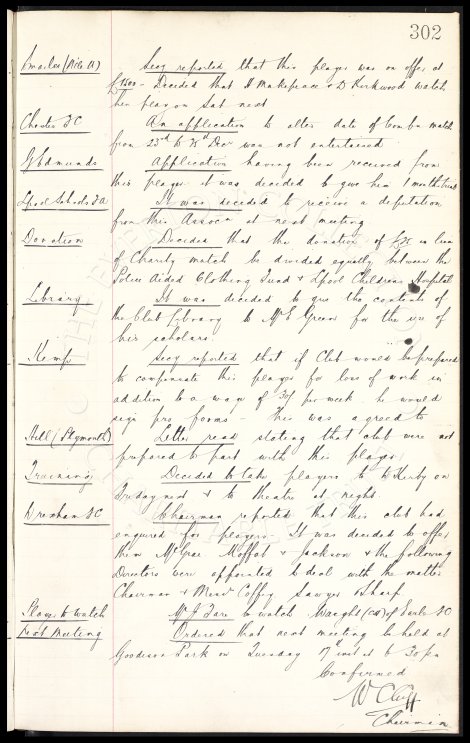 302
Secy reported that this player was on offer at
£1500 - Decided that H Makepeace & D Kirkwood watch
him play on Sat next
Chester FC
An application to alter date of Comb'n match
from 23rd to 25th Decr was not entertained
G Edmunds
Application having been received from
this player it was decided to give him 1 month trial
Lpool Schools FA
It was decided to receive a deputation
from this Assocn at next meeting
Donation
Decided that the donation of in lieu
of Charity match be divided equally between the
Police Aided Clothing Fund & Lpool Childrens Hospital
Library
It was decided to give the contents of
the Club Library to Mr E Green for the use of
his scholars
Kemp
Secy reported that if Club would be prepared
to compensate this player for loss of work in
addition to a wage of 30/ per week he would
sign pro forms - This was agreed to
Hill (Plymouth)
Letter read stating that club were not
prepared to part with this player
Training
Decided to take players to W Kirby on
Tuesday next & to theatre at night.
Wrexham FC
Chairman reported that this club had
enquired for players - It was decided to offer
them McGrae Moffat & Jackson & the following
Directors were appointed to deal with the matter
Chairman & Messrs Coffey Sawyer Sharp
Plays to watch
Mr J Fare to watch Waight (CH) of Earle FC
Next Meeting
Ordered that next meeting be held at
Goodison Park on Tuesday 17th inst at 5-30 pm
Confirmed
W C Cuff
Chairman